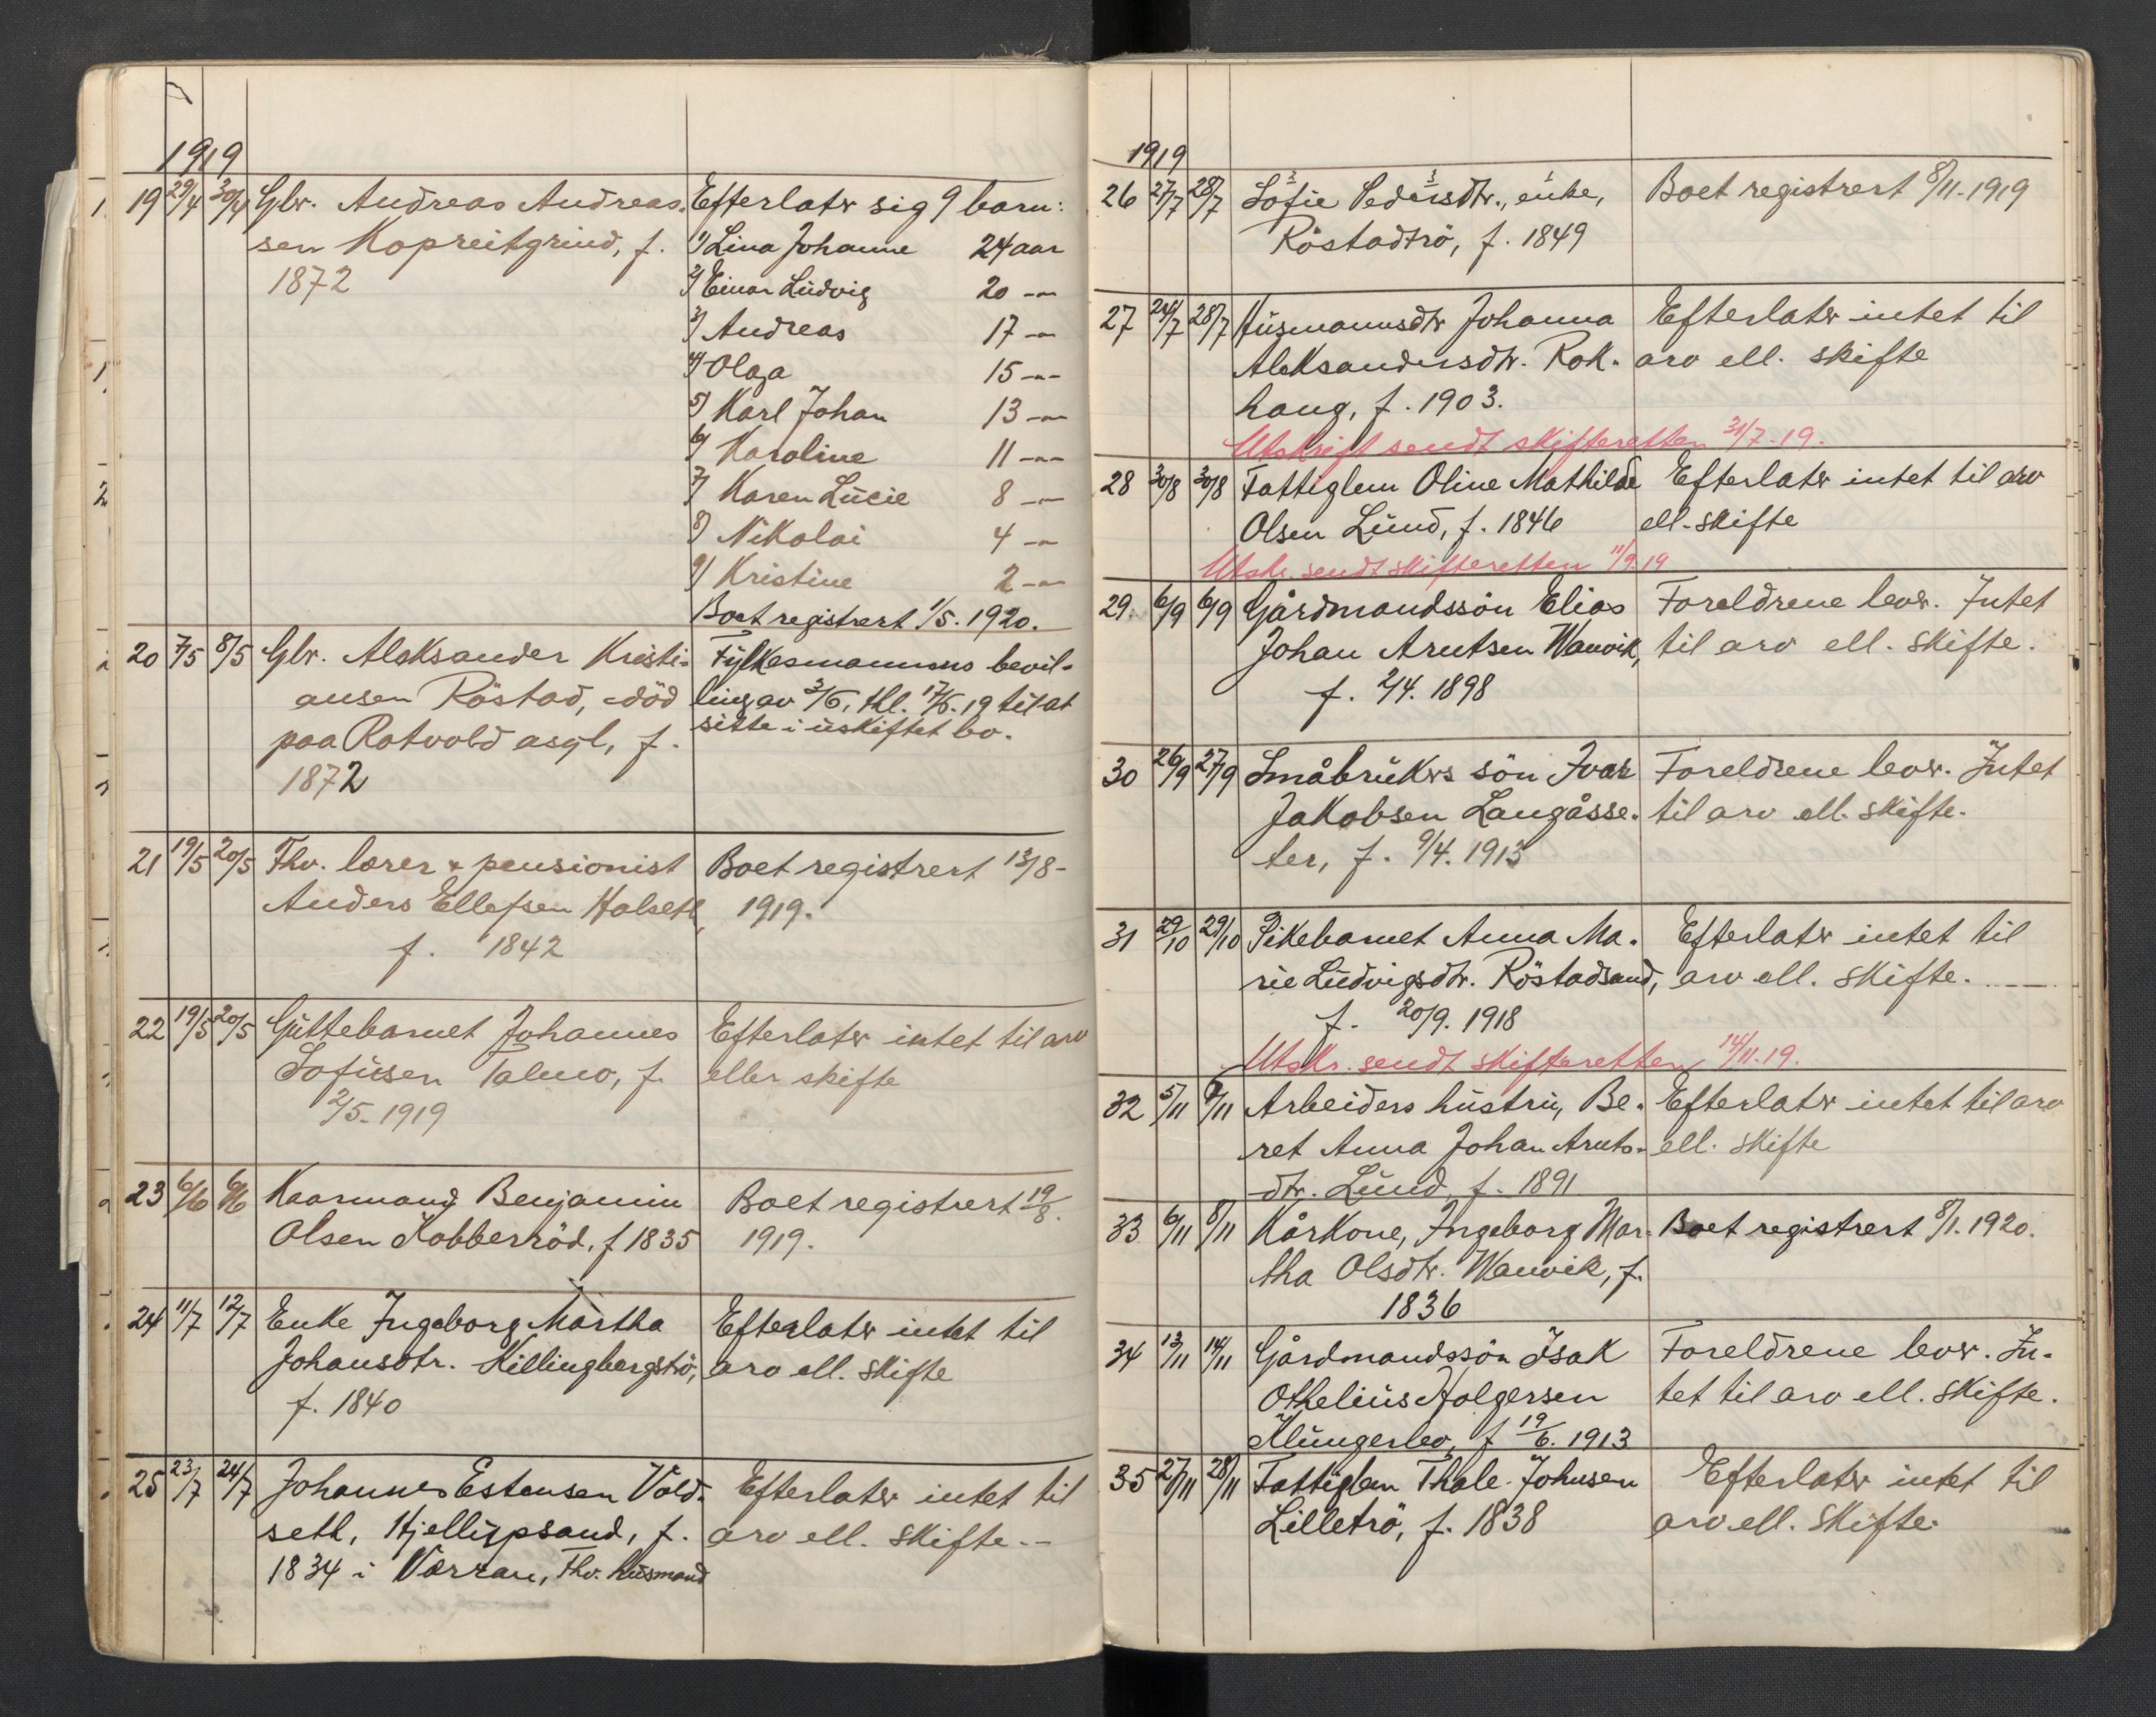 1919
19 29/4 30/4 Gbr. Andreas Andreas-
sen Kopreitgrind, f.
1872
Efterlater sig 9 barn:
1) Lina Johanne 24 aar
2) Einar Ludvig 20 -"-
3) Andreas 17 -"-
4) Olaga 15 -"-
5) Karl Johan 13 -"-
6) Karoline 11 -"-
7) Karen Lucie 8 -"-
8) Nikolai 4 -"-
9) Kristine 2 -"-
Boet registrert 1/5. 1920.
20 7/5 8/5 Gbr. Aleksander Kristi-
ansen Röstad, död
paa Rotvold asyl, f.
1872
Fylkesmannens bevil-
ling av 3/6, thl. 17/6. 19 til at
sitte i uskiftet bo.
21 19/5 20/5 Fhv. lærer & pensionist
Anders Ellefsen Halseth,
f. 1842
Boet registrert 13/8-
1919.
22 19/5 20/5 Guttebarnet Johannes
Sofusen Talmo, f.
2/5. 1919
Efterlater intet til arv
eller skifte
23 6/6 6/6 Kaarmand Benjamin
Olsen Kobberröd, f 1835
Boet registrert 19/8.
1919.
24 11/7 12/7 Enke Ingeborg Martha
Johansdtr. Killingbergströ,
f. 1840
Efterlater intet til
arv ell. skifte
25 23/7 24/7 Johannes Estensen Vold-
seth, Hjellupsand, f.
1834 i Værran, Fhv. husmand
Efterlater intet til
arv ell. skifte.-
1919
26 27/7 28/7 Sofie Pedersdtr., enke,
Röstadtrö, f. 1849
Boet registrert 8/11-1919
27 24/7 28/7 Husmannsdtr Johanna
Aleksandersdtr. Rok-
haug, f. 1903.
Efterlater intet til
arv ell. skifte
Utskrift sendt skifteretten 31/7-19.
28 30/8 30/8 Fattiglem Oline Mathilde
Olsen Lund, f. 1846
Efterlater intet til arv
ell. skifte
Utskr. sendt skifteretten 11/9.19
29. 6/9 6/9 Gårdmandssön Elias
Johan Arntsen Wanvik,
f. 2/4. 1898
Foreldrene lever. Intet
til arv ell. skifte.
30 26/9 27/9 Småbrukers sön Ivar
Jakobsen Langåsse-
ter, f. 9/4. 1913
Foreldrene lever. Intet
til arv ell. skifte.
31 29/10 29/10 Pikebarnet Anna Ma-
rie Ludvigsdtr. Röstadsand,
f. 20/9. 1918
Efterlater intet til
arv ell. skifte.
Utskr. sendt skifteretten 14/11.19.
32 5/11 6/11 Arbeiders hustru, Be-
ret Anna Johan Arnts-
dtr. Lund, f. 1891
Efterlater intet til arv
ell. skifte
33 6/11 8/11 Kårkone, Ingeborg Mar-
tha Olsdtr. Wanvik, f.
1836
Boet registrert 8/1. 1920.
34 13/11 14/11 Gårdmandssön Isak
Othelius Holgersen
Klungerbo, f 19/6. 1913
Foreldrene lever. In-
tet til arv ell. skifte.
35 27/11 28/11 Fattiglem Thale Johnsen
Lilletrö, f. 1838
Efterlater intet til
arv ell. skifte.